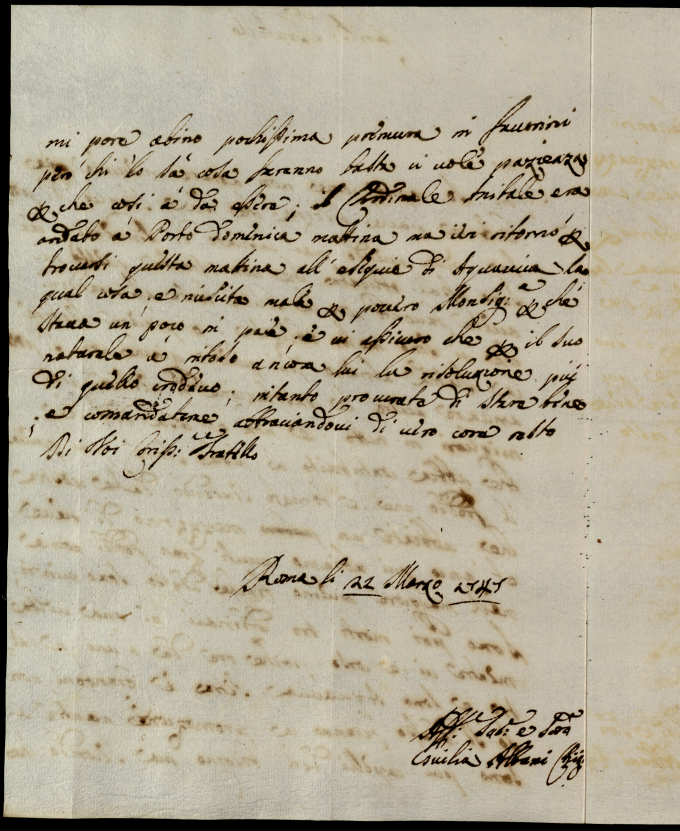 mi pare abino pochissima premura in favorirvi
però chi lo sà cosa faranno basta ci vole pazienza
& che così à da essere; il Cardinale era
andato à Porto Domenica mattina ma ieri ritornò &
trovarsi questa mattina all' esequie di Aquaviva la
qual cosa e riuscita male & povero Monsig:e & che
stava un' poco in pae e vi assicuro che & il suo
naturale à ancora lui la risoluzione più
di quello credevo; intanto procurate di stare bene
e comandatene abbraciandovi di vero core resto
Di Voi Cariss: Fratello
Roma li 22 Marzo 1747
Aff: e
Albani